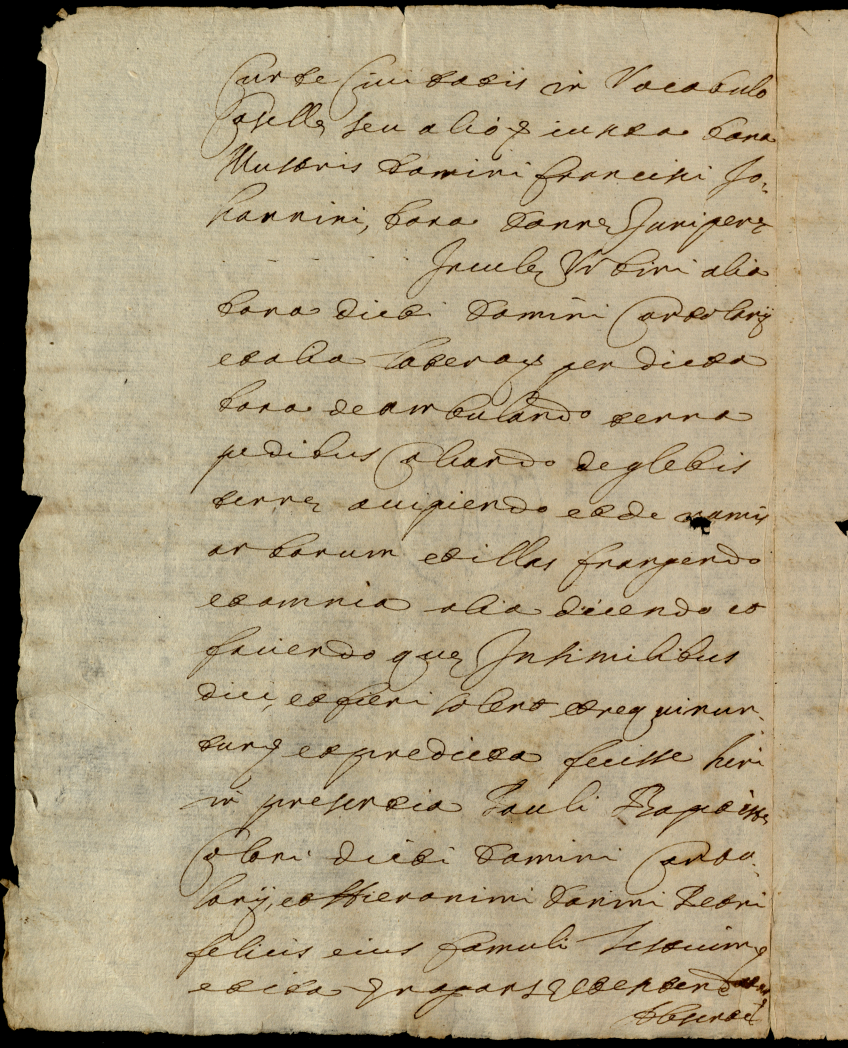 Curte Civitatis in Vocabulo
Caselle seu alio et iuxta bona
Illustris Domini Francisci Jo=
hannini, bona Domne Juniper
Urbini alia
bona dicti Domini Cartolarij
et alia latera et per dicta
bona deambulando terra
pedibus Calcando de glebis
terre accipiendo et de ramis
arborum et illas frangendo
et omnia alia dicendo et
faciendo que In similibus
dici, et fieri solent et requirun=
tur et predicta fecisse heri
in presentia Pauli Baptiste
Coloni dicti Domini Carto=
larij, et Hieronimi Domini Petri
felicis eius famuli Testium
et ita